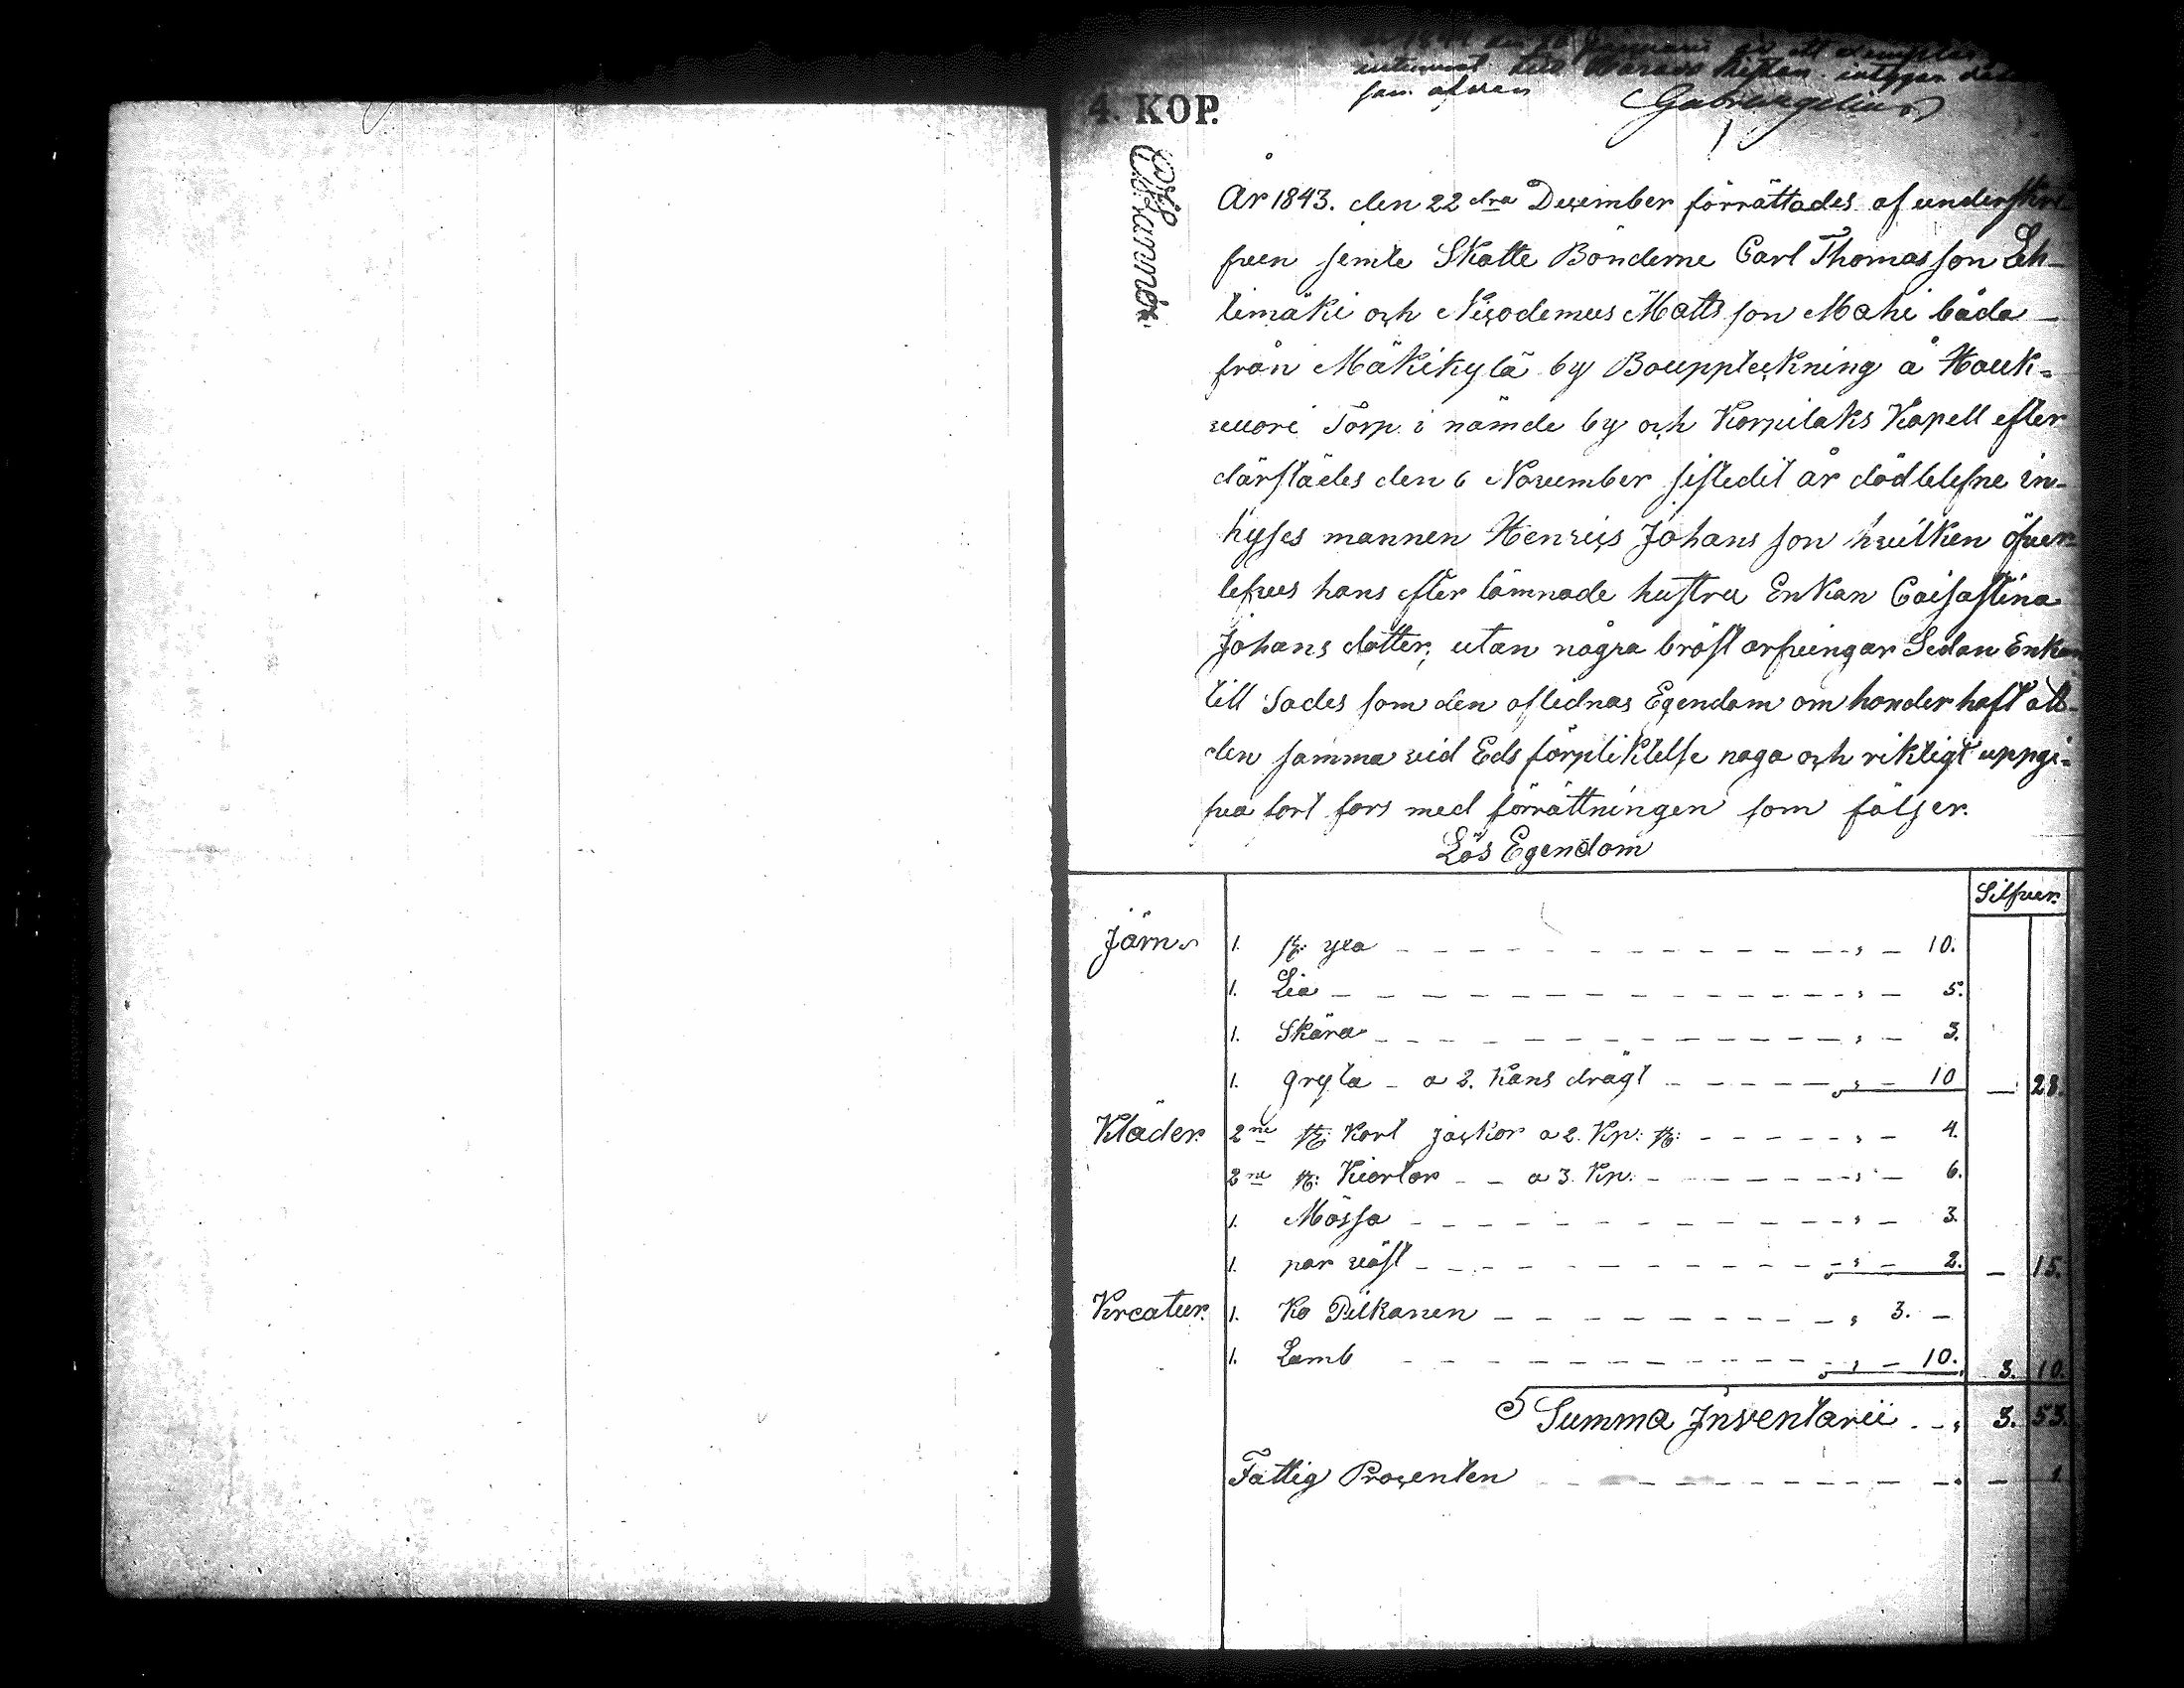 4. KOP.
År 1843. den 22dra December förrättades af underskre-
fven jemte Skatte Bönderne Carl Thomas son Leh-
timäki och Nicodemus Matts son Mahi båda
från Mäkikylä by Bouppteckning å Hauk-
vuori Torp i nämde by och Korpilaks Kapell efter
därstädes den 6 November sistedit år dödblefne in-
hyses mannen Henrics Johans son hvilken öfver-
lefves hans efter lämnade hustru Enkan Caisastina
Johans dotter, utan några bröst arfvingar Sedan Enkan
till Sades som den aflednas Egendom om honder haft att
den samma vid Eds förpliktelse noga och riktigt uppgi-
fva fort fors med förrättningen som följer.
Lös Egendom
Silfver.
Järn 1. st: yxa 10.
1. Lia 5.
1. Skära 3.
1. gryta a 2. Kans drägt 10 — 28.
Kläder 2ne st: Kort jackor a 2. Kp: st: 4.
2ne st: Kiortlar a 3. Kp. 6.
1. Mössa 3.
1. par väst 2. — 15.
Kreatur. 1. Ko Pilkanen 3. —
1. Lamb 10. 3. 10.
Summa Inventarii 3. 53.
Fattig Procenten — 1